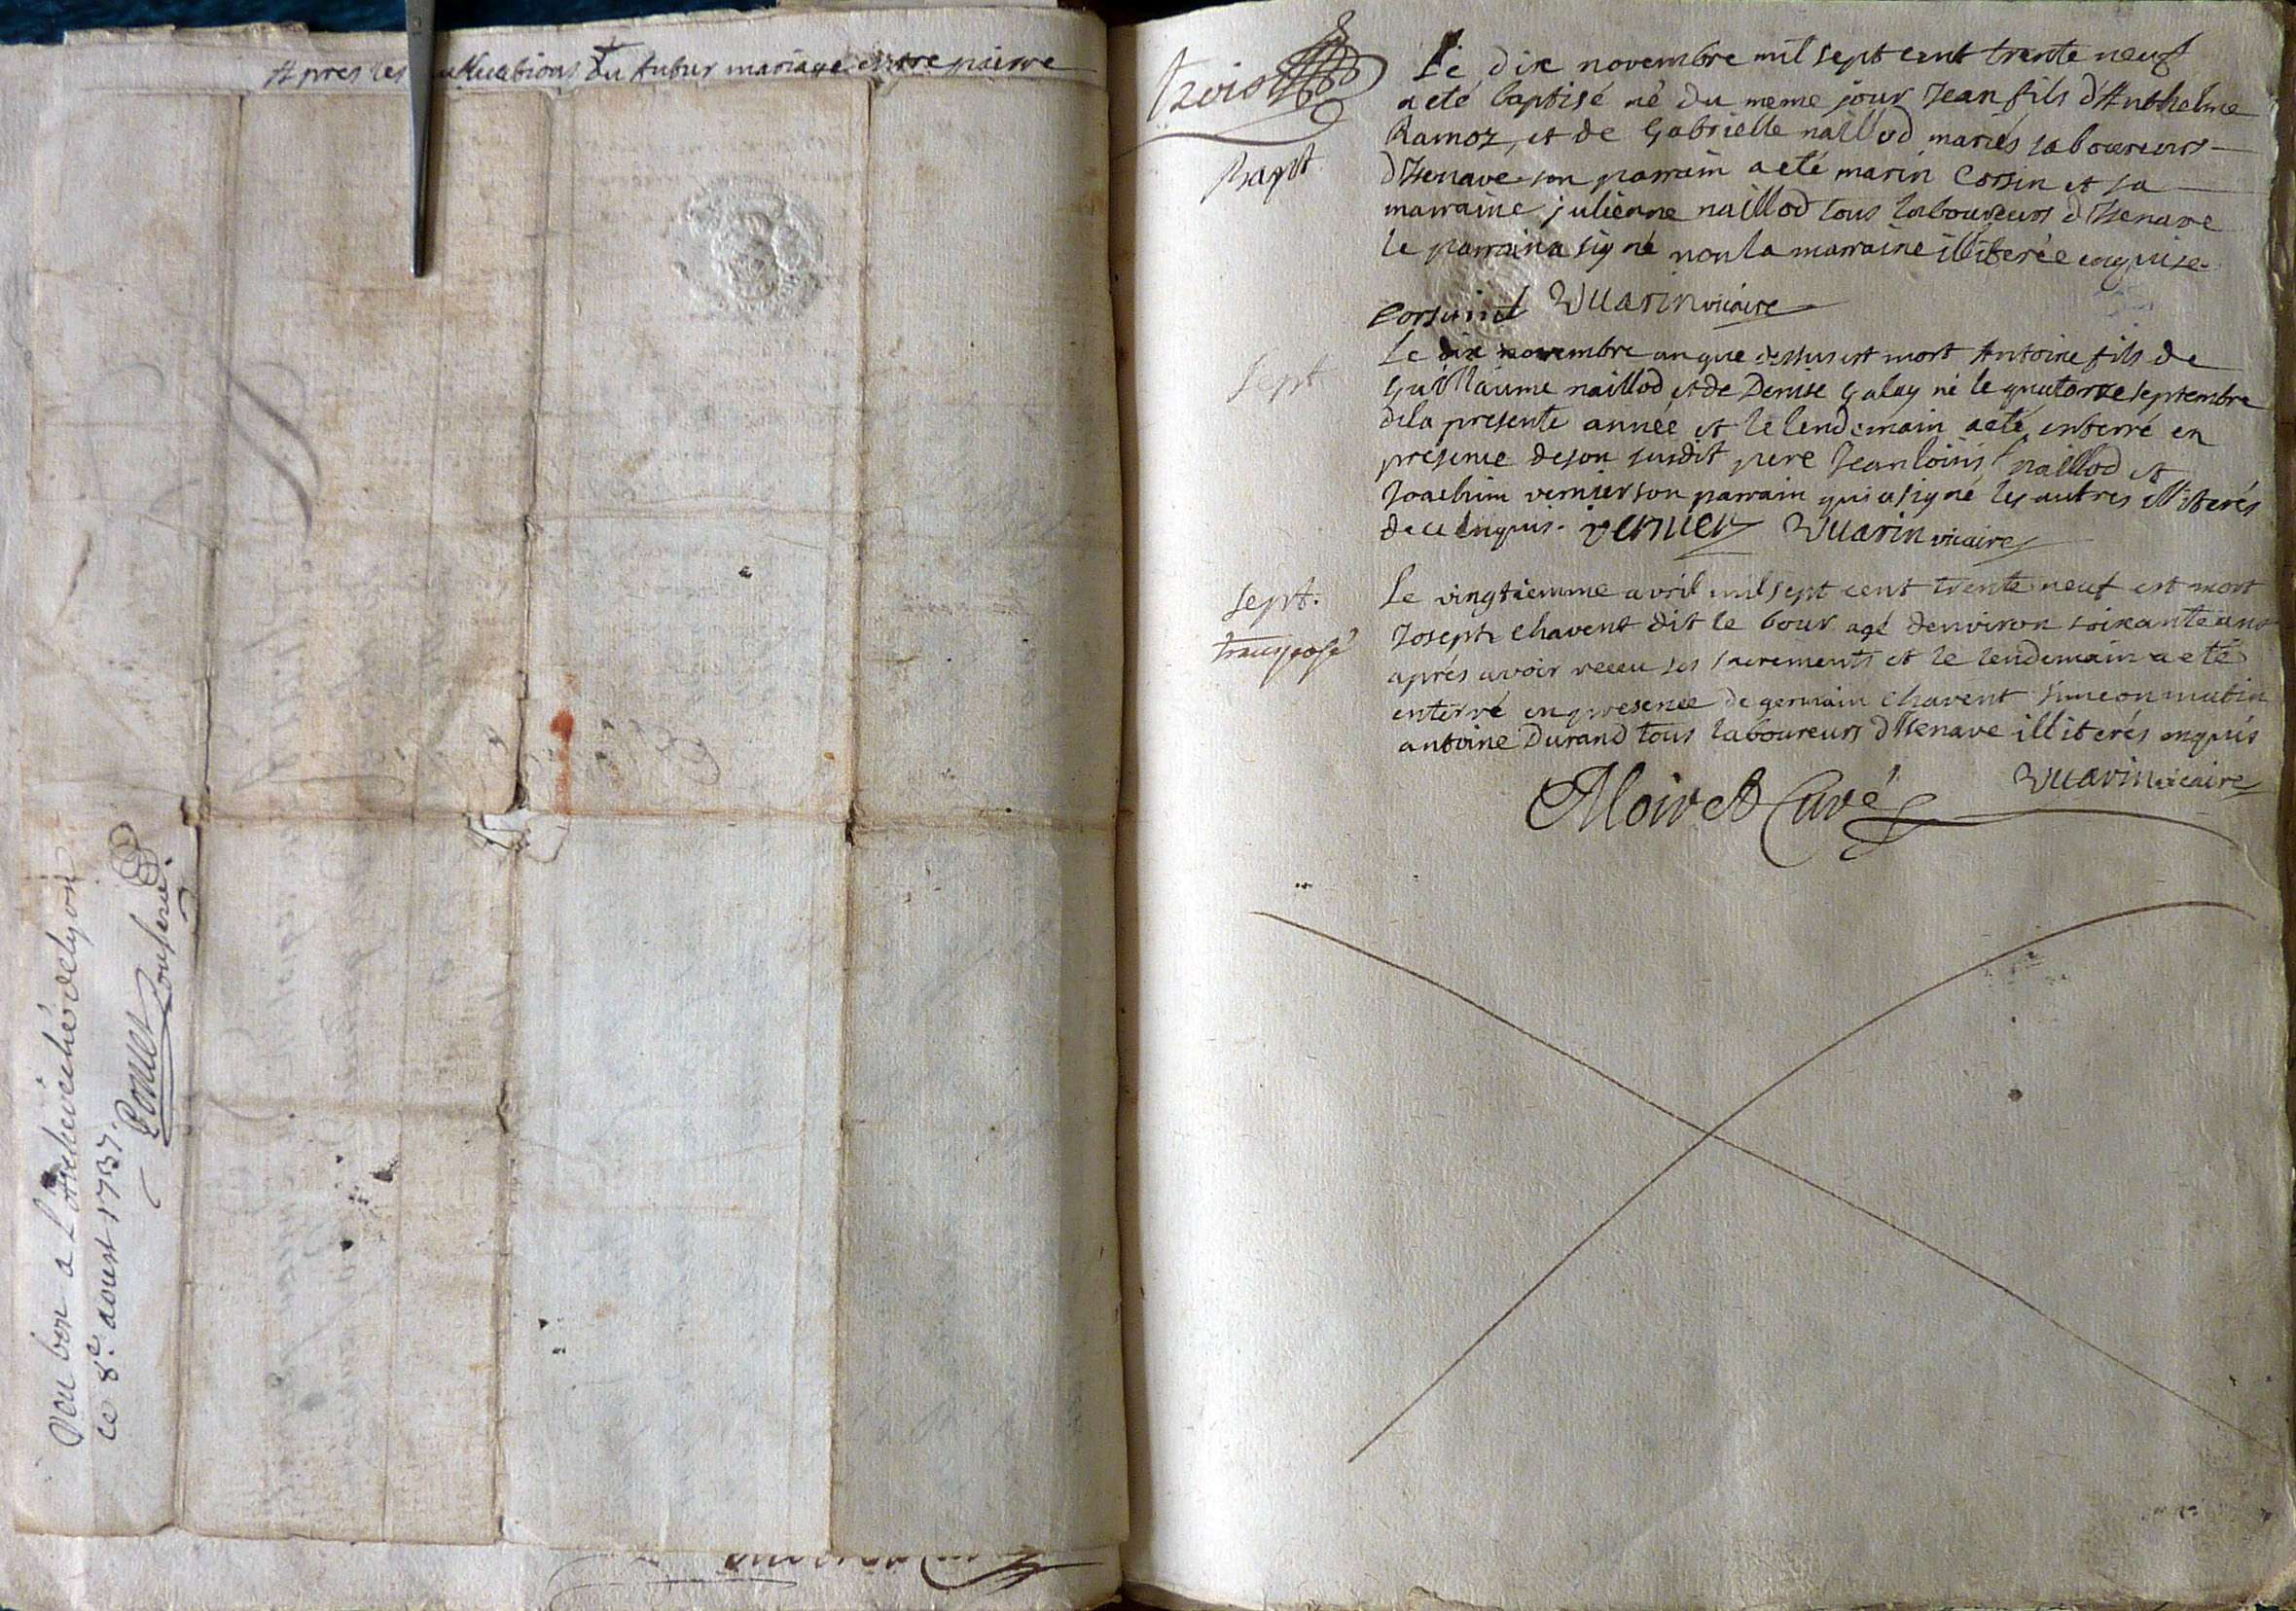 Apres les publications du futur mariage entre pierre
Veu bon a L'Archeveché de Lyon
ce 8e. aoust 1737.
trois
Bapt
Le dix novembre mil sept cent trente neuf
a eté baptisé né du meme jour Jean fils d'Anthelme
Ramoz, et de Gabrielle naillod mariés laboureurs
d'Izenave son parrain a eté marin Corsin et sa
marraine julienne naillod tous laboureurs d'Izenave
le parrain a signé non la marraine illiterée enquise.
Corsin Vuarin vicaire
Sept
Le dix novembre an que dessus est mort Antoine fils de
Guillaume naillod et de Denise Galay né le quatorze septembre
de la presente année et le lendemain a eté enterré en
presence de son susdit pere Jean loüis naillod et
Joachim vernier son parrain qui a signé les autres illiterés
de ce enquis. Vernier Vuarin vicaire
Sept.
transposé
Le vingtiemme avril mil sept cent trente neuf est mort
Joseph Chavent dit le bour agé d'environ soixante ans
aprés avoir receu ses sacrements et le lendemain a eté
enterré en presence de germain Chavent Simeon mutin
antoine Durand tous laboureurs d'Izenave illiterés enquis
Vuarin vicaire
Moiret Curé